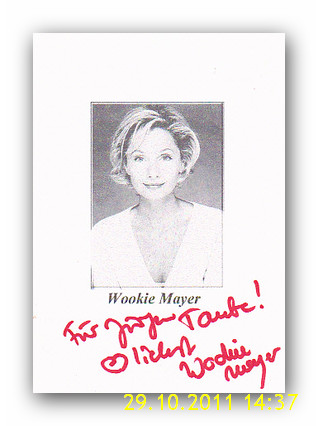 Wookie Mayer
Für Jürgen Taube!
♡lichst
Wookie
Mayer
29.10.2011 14:37